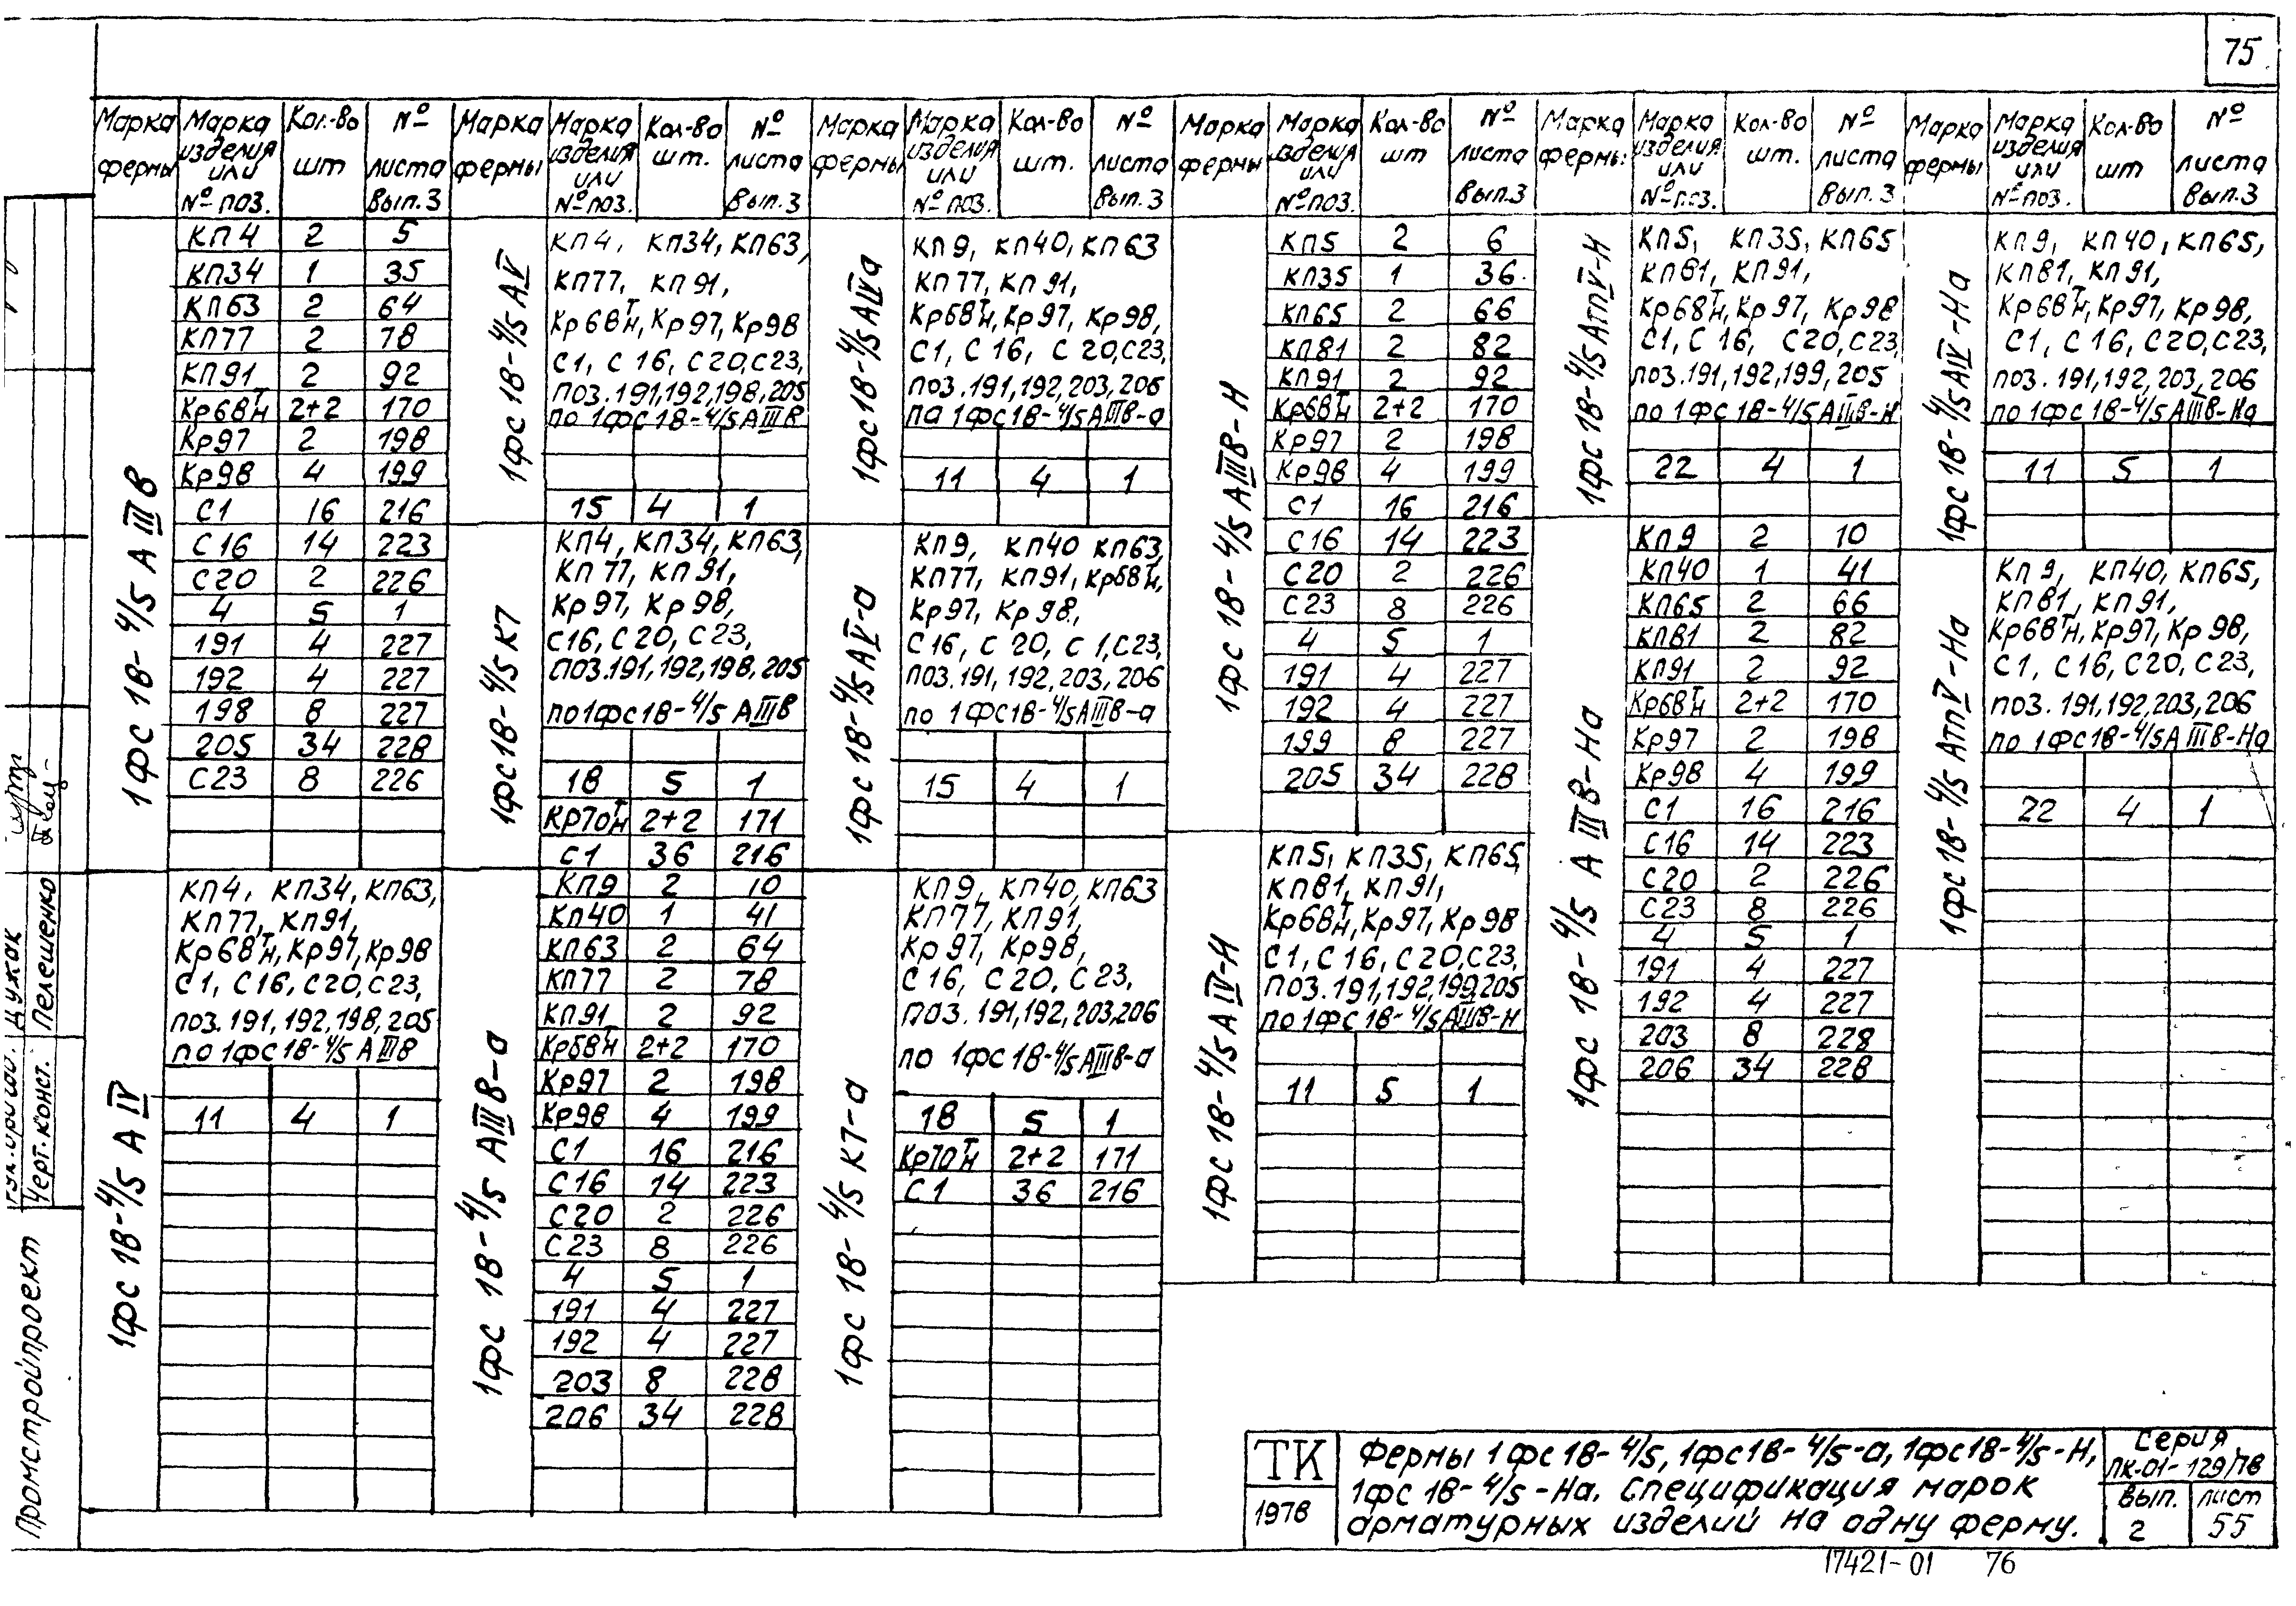 75
Марка фермы | Марка изделия или № поз. | Кол-во шт | № листа Вып. 3
1фс 18-4/5 АIIIв
КП4 2 5
КП34 1 35
КП63 2 64
КП77 2 78
КП91 2 92
Кр68Т/Н 2+2 170
Кр97 2 198
Кр98 4 199
С1 16 216
С16 14 223
С20 2 226
4 5 1
191 4 227
192 4 227
198 8 227
205 34 228
С23 8 226
1фс 18-4/5 АIV
КП4, КП34, КП63,
КП77, КП91,
Кр68Т/Н, Кр97, Кр98
С1, С16, С20, С23,
поз. 191, 192, 198, 205
по 1фс18-4/5 АIIIв
11 4 1
Марка фермы | Марка изделия или № поз. | Кол-во шт. | № листа Вып. 3
1фс 18-4/5 АV
КП4, КП34, КП63,
КП77, КП91,
Кр68Т/Н, Кр97, Кр98
С1, С16, С20, С23,
поз. 191, 192, 198, 205
по 1фс18-4/5 АIIIв
15 4 1
1фс18-4/5 К7
КП4, КП34, КП63,
КП77, КП91,
Кр97, Кр98,
С16, С20, С23,
поз. 191, 192, 198, 205
по 1фс18-4/5 АIIIв
18 5 1
Кр70Т/Н 2+2 171
С1 36 216
1фс 18-4/5 АIIIв-а
КП9 2 10
КП40 1 41
КП63 2 64
КП77 2 78
КП91 2 92
Кр68Т/Н 2+2 170
Кр97 2 198
Кр98 4 199
С1 16 216
С16 14 223
С20 2 226
С23 8 226
4 5 1
191 4 227
192 4 227
203 8 228
206 34 228
Марка фермы | Марка изделия или № поз. | Кол-во шт. | № листа Вып. 3
1фс18-4/5 АIVа
КП9, КП40, КП63
КП77, КП91,
Кр68Т/Н, Кр97, Кр98,
С1, С16, С20, С23,
поз. 191, 192, 203, 206
па 1фс18-4/5 АIIIв-а
11 4 1
1фс 18-4/5 АV-а
КП9, КП40 КП63,
КП77, КП91, Кр68Т/Н,
Кр97, Кр98,
С16, С20, С1, С23,
поз. 191, 192, 203, 206
по 1фс18-4/5 АIIIв-а
15 4 1
1фс 18-4/5 К7-а
КП9, КП40, КП63
КП77, КП91,
Кр97, Кр98,
С16, С20, С23,
поз. 191, 192, 203, 206
по 1фс18-4/5 АIIIв-а
18 5 1
Кр70Т/Н 2+2 171
С1 36 216
Марка фермы | Марка изделия или № поз. | Кол-во шт | № листа Вып. 3
1фс 18-4/5 АIIIв-Н
КП5 2 6
КП35 1 36
КП65 2 66
КП81 2 82
КП91 2 92
Кр68Т/Н 2+2 170
Кр97 2 198
Кр98 4 199
С1 16 216
С16 14 223
С20 2 226
С23 8 226
4 5 1
191 4 227
192 4 227
199 8 227
205 34 228
1фс 18-4/5 АIV-Н
КП5, КП35, КП65,
КП81, КП91,
Кр68Т/Н, Кр97, Кр98
С1, С16, С20, С23,
поз. 191, 192, 199, 205
по 1фс18-4/5 АIIIв-Н
11 5 1
Марка фермы | Марка изделия или № поз. | Кол-во шт. | № листа Вып. 3
1фс 18-4/5 АтпV-Н
КП5, КП35, КП65
КП81, КП91,
Кр68Т/Н, Кр97, Кр98
С1, С16, С20, С23,
поз. 191, 192, 199, 205
по 1фс18-4/5 АIIIв-Н
22 4 1
1фс 18-4/5 АIIIв-На
КП9 2 10
КП40 1 41
КП65 2 66
КП81 2 82
КП91 2 92
Кр68Т/Н 2+2 170
Кр97 2 198
Кр98 4 199
С1 16 216
С16 14 223
С20 2 226
С23 8 226
4 5 1
191 4 227
192 4 227
203 8 228
206 34 228
Марка фермы | Марка изделия или № поз. | Кол-во шт | № листа Вып. 3
1фс 18-4/5 АIV-На
КП9, КП40, КП65,
КП81, КП91,
Кр68Т/Н, Кр97, Кр98,
С1, С16, С20, С23,
поз. 191, 192, 203, 206
по 1фс18-4/5 АIIIв-На
11 5 1
1фс 18-4/5 АтпV-На
КП9, КП40, КП65,
КП81, КП91,
Кр68Т/Н, Кр97, Кр98,
С1, С16, С20, С23,
поз. 191, 192, 203, 206
по 1фс18-4/5 АIIIв-На
22 4 1
Дужак
Черт. конст. Пелешенко
Промстройпроект
ТК
1978
Фермы 1фс18-4/5, 1фс18-4/5-а, 1фс18-4/5-Н,
1фс 18-4/5-На. Спецификация марок
арматурных изделий на одну ферму.
Серия
ПК-01-129/78
Вып. 2
лист 55
17421-01 76